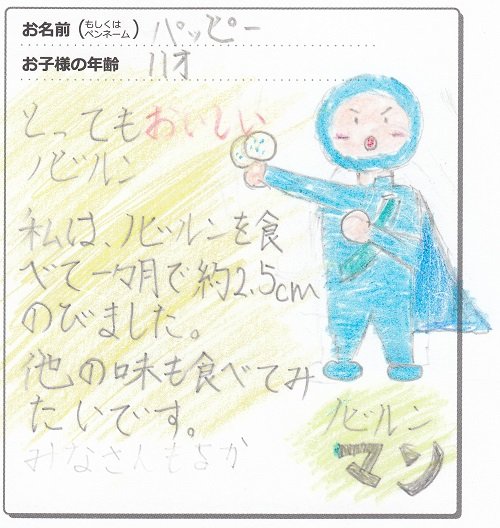 お名前(もしくはペンネーム) パッピー
お子様の年齢 11才
とってもおいしい
ノビルン
私は、ノビルンを食
べて一ヶ月で約2.5cm
のびました。
池の味も食べてみ
たいです。
みなさんもよか
ノビルン
マン